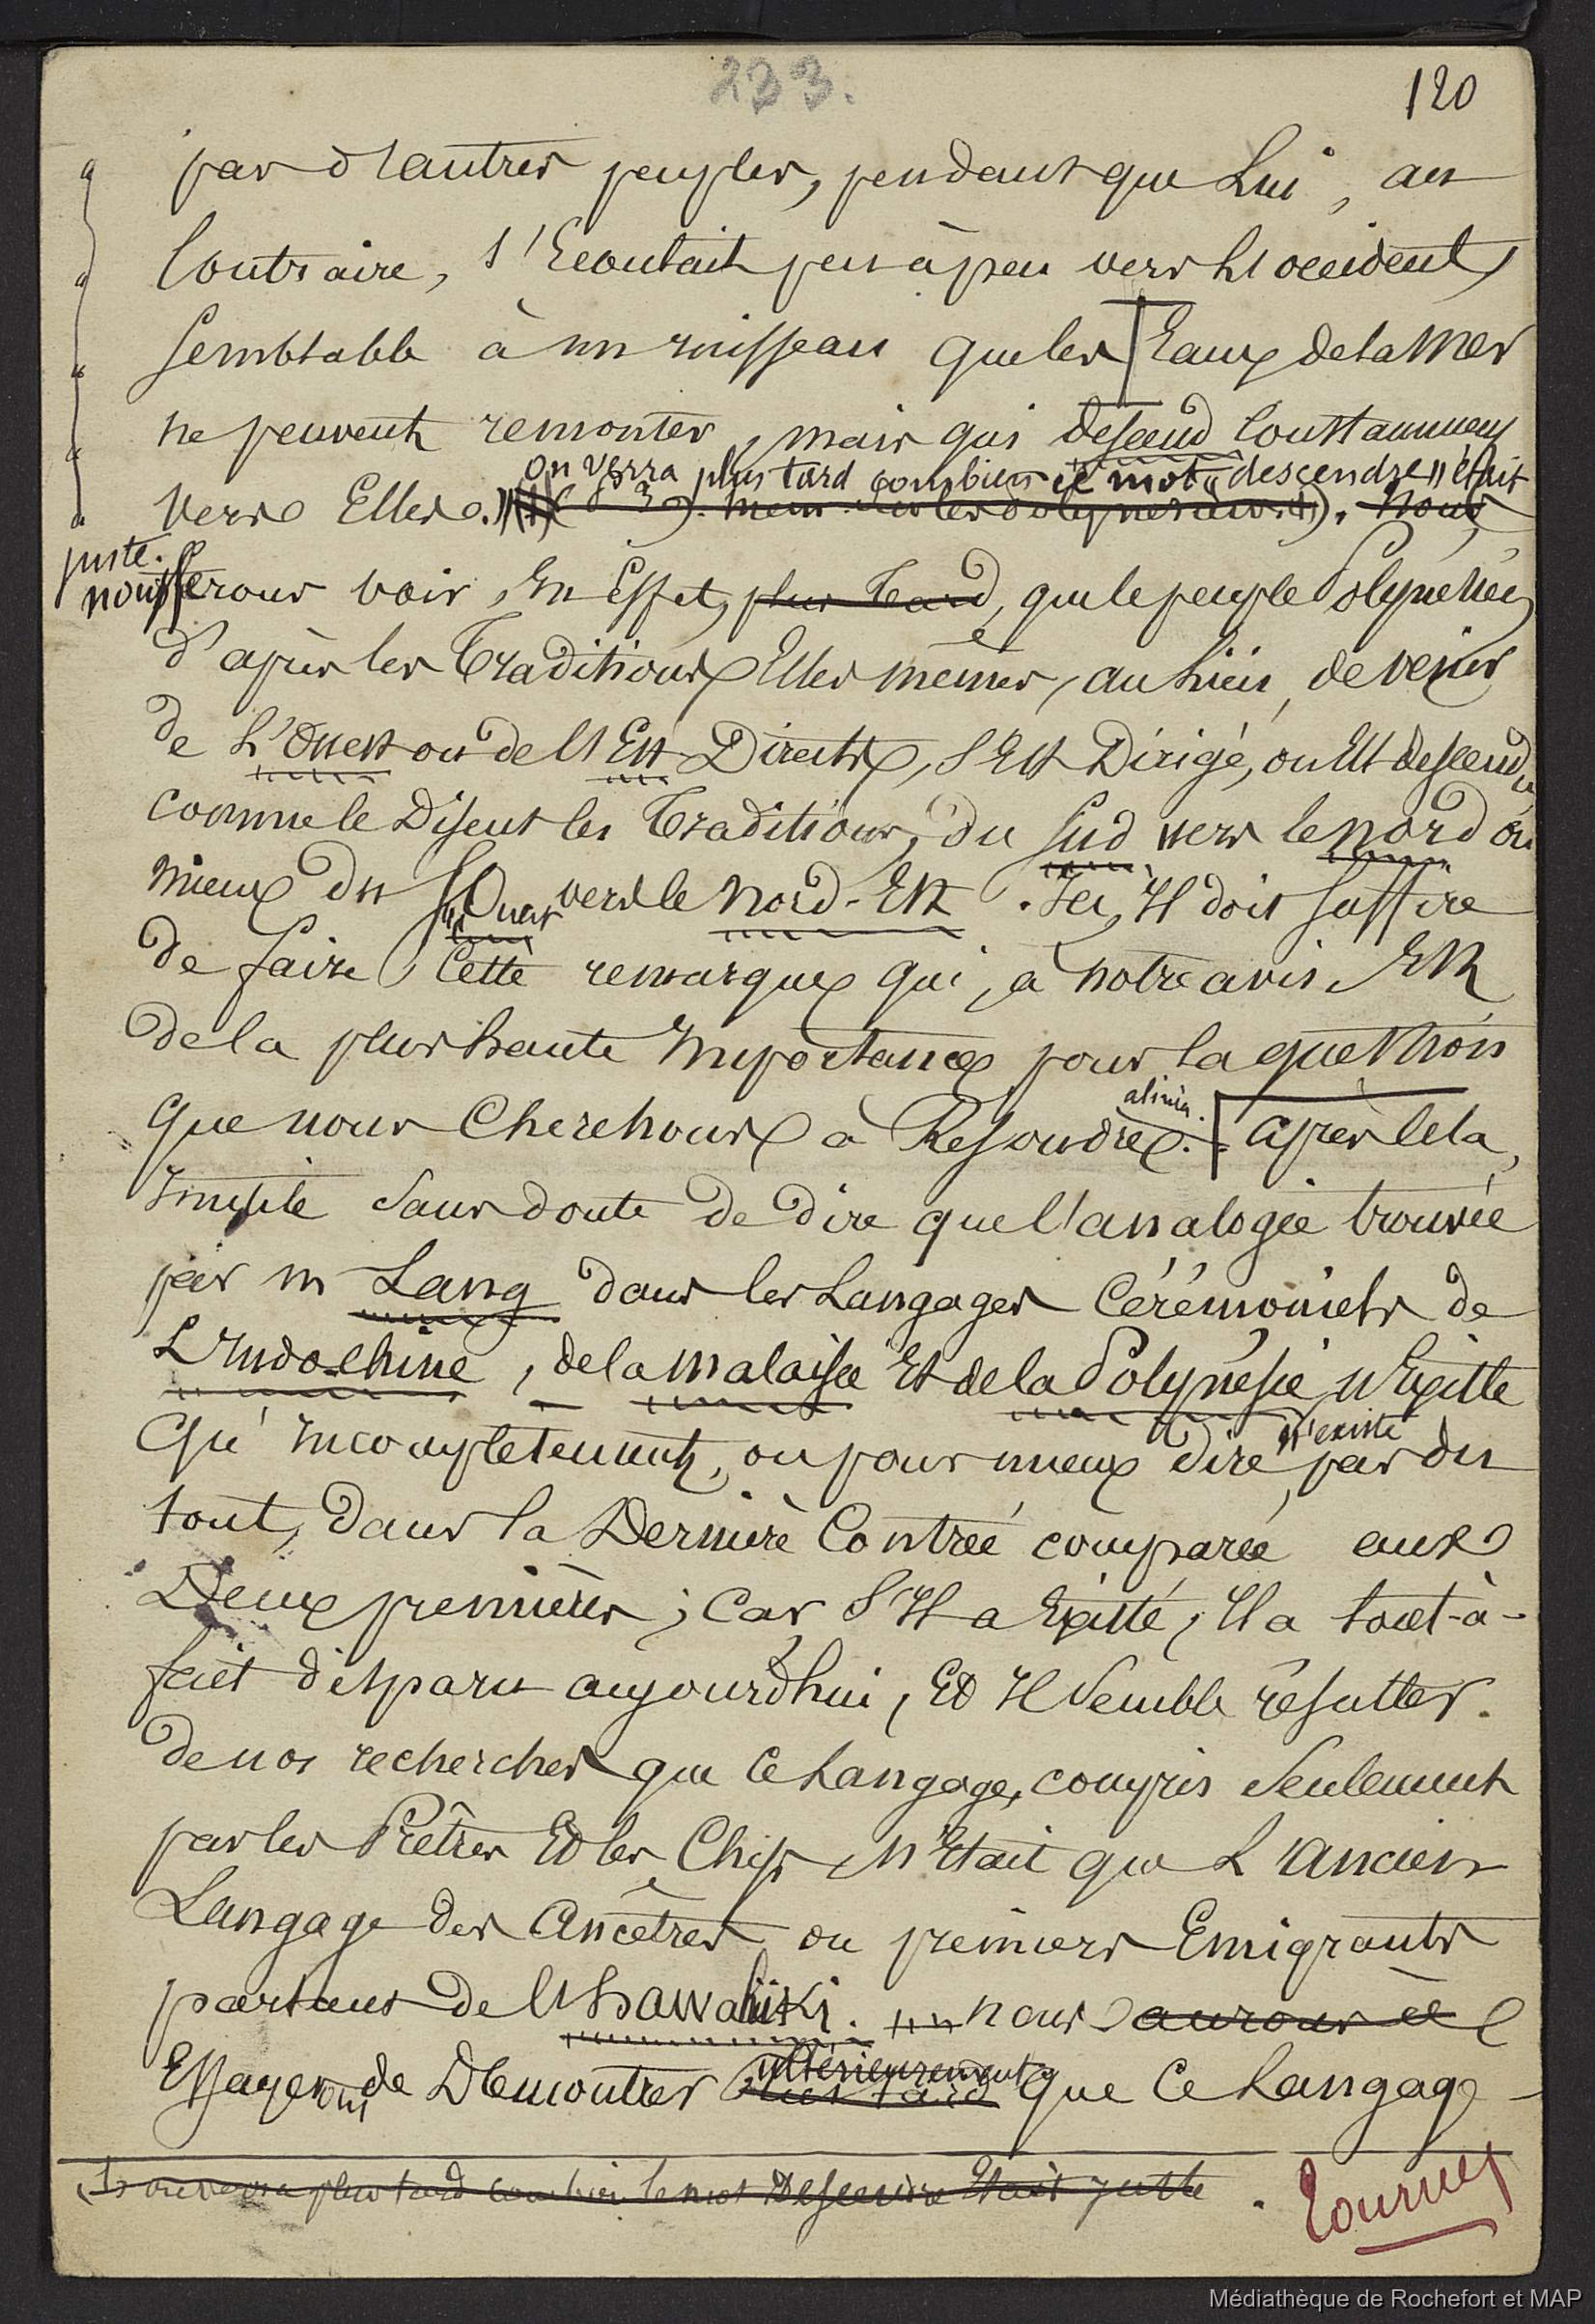 233.
120
par d'autres peuples, pendant que Lui, au
Contraire, s'Ecoulait peu à peu vers l'occident,
Semblable à un ruisseau que les Eaux de la Mer
ne peuvent remonter, mais qui descend Constamment
on verra plus tard combien ce mot "descendre" était
vers Elles."
juste.
nous ferons voir, En Effet, plus tard, que le peuple Polynésien
d'après les Traditions Elles mêmes, au lieu, de venir
de L'Ouest ou de l'Est Directs, S'Est Dirigé, ou Est descendu
comme le Disent les Traditions, du Sud vers le nord ou
mieux du S. Ouest vers le Nord-Est. Ici, Il doit suffire
de faire Cette remarque qui, à notre avis, Est
de la plus haute Importance pour la question
alinéa.
que nous Cherchons à Résoudre. après cela,
Inutile sans doute de dire que l'analogie trouvée
par M Lang dans les Langages Cérémoniels de
L'Indo-chine, de la Malaisie Et de la Polynésie n'Existe
n'existe
qu'Incomplètement, ou pour mieux dire pas du
tout, dans la Dernière Contrée comparée aux
Deux premières; Car S'Il a Existé, Il a tout-à-
fait disparu aujourd'hui, Et Il semble résulter
de nos recherches que Ce Langage, compris Seulement
par les Prêtres Et les Chefs n'Etait que L'ancien
Langage des Ancêtres ou premiers Emigrants
partant de l'hawahiki. nous aurons à
ultérieurement
Essayerons de Démontrer plus tard que Ce Langage
(1) on verra plus tard combien le mot Descendre Etait juste.
Tournez
Médiathèque de Rochefort et MAP